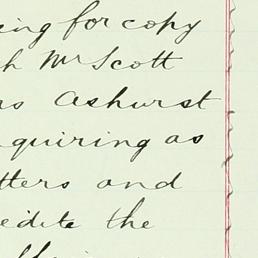 ing for copy
h Mr Scott
rs Ashurst
quiring as
tters and
edite the